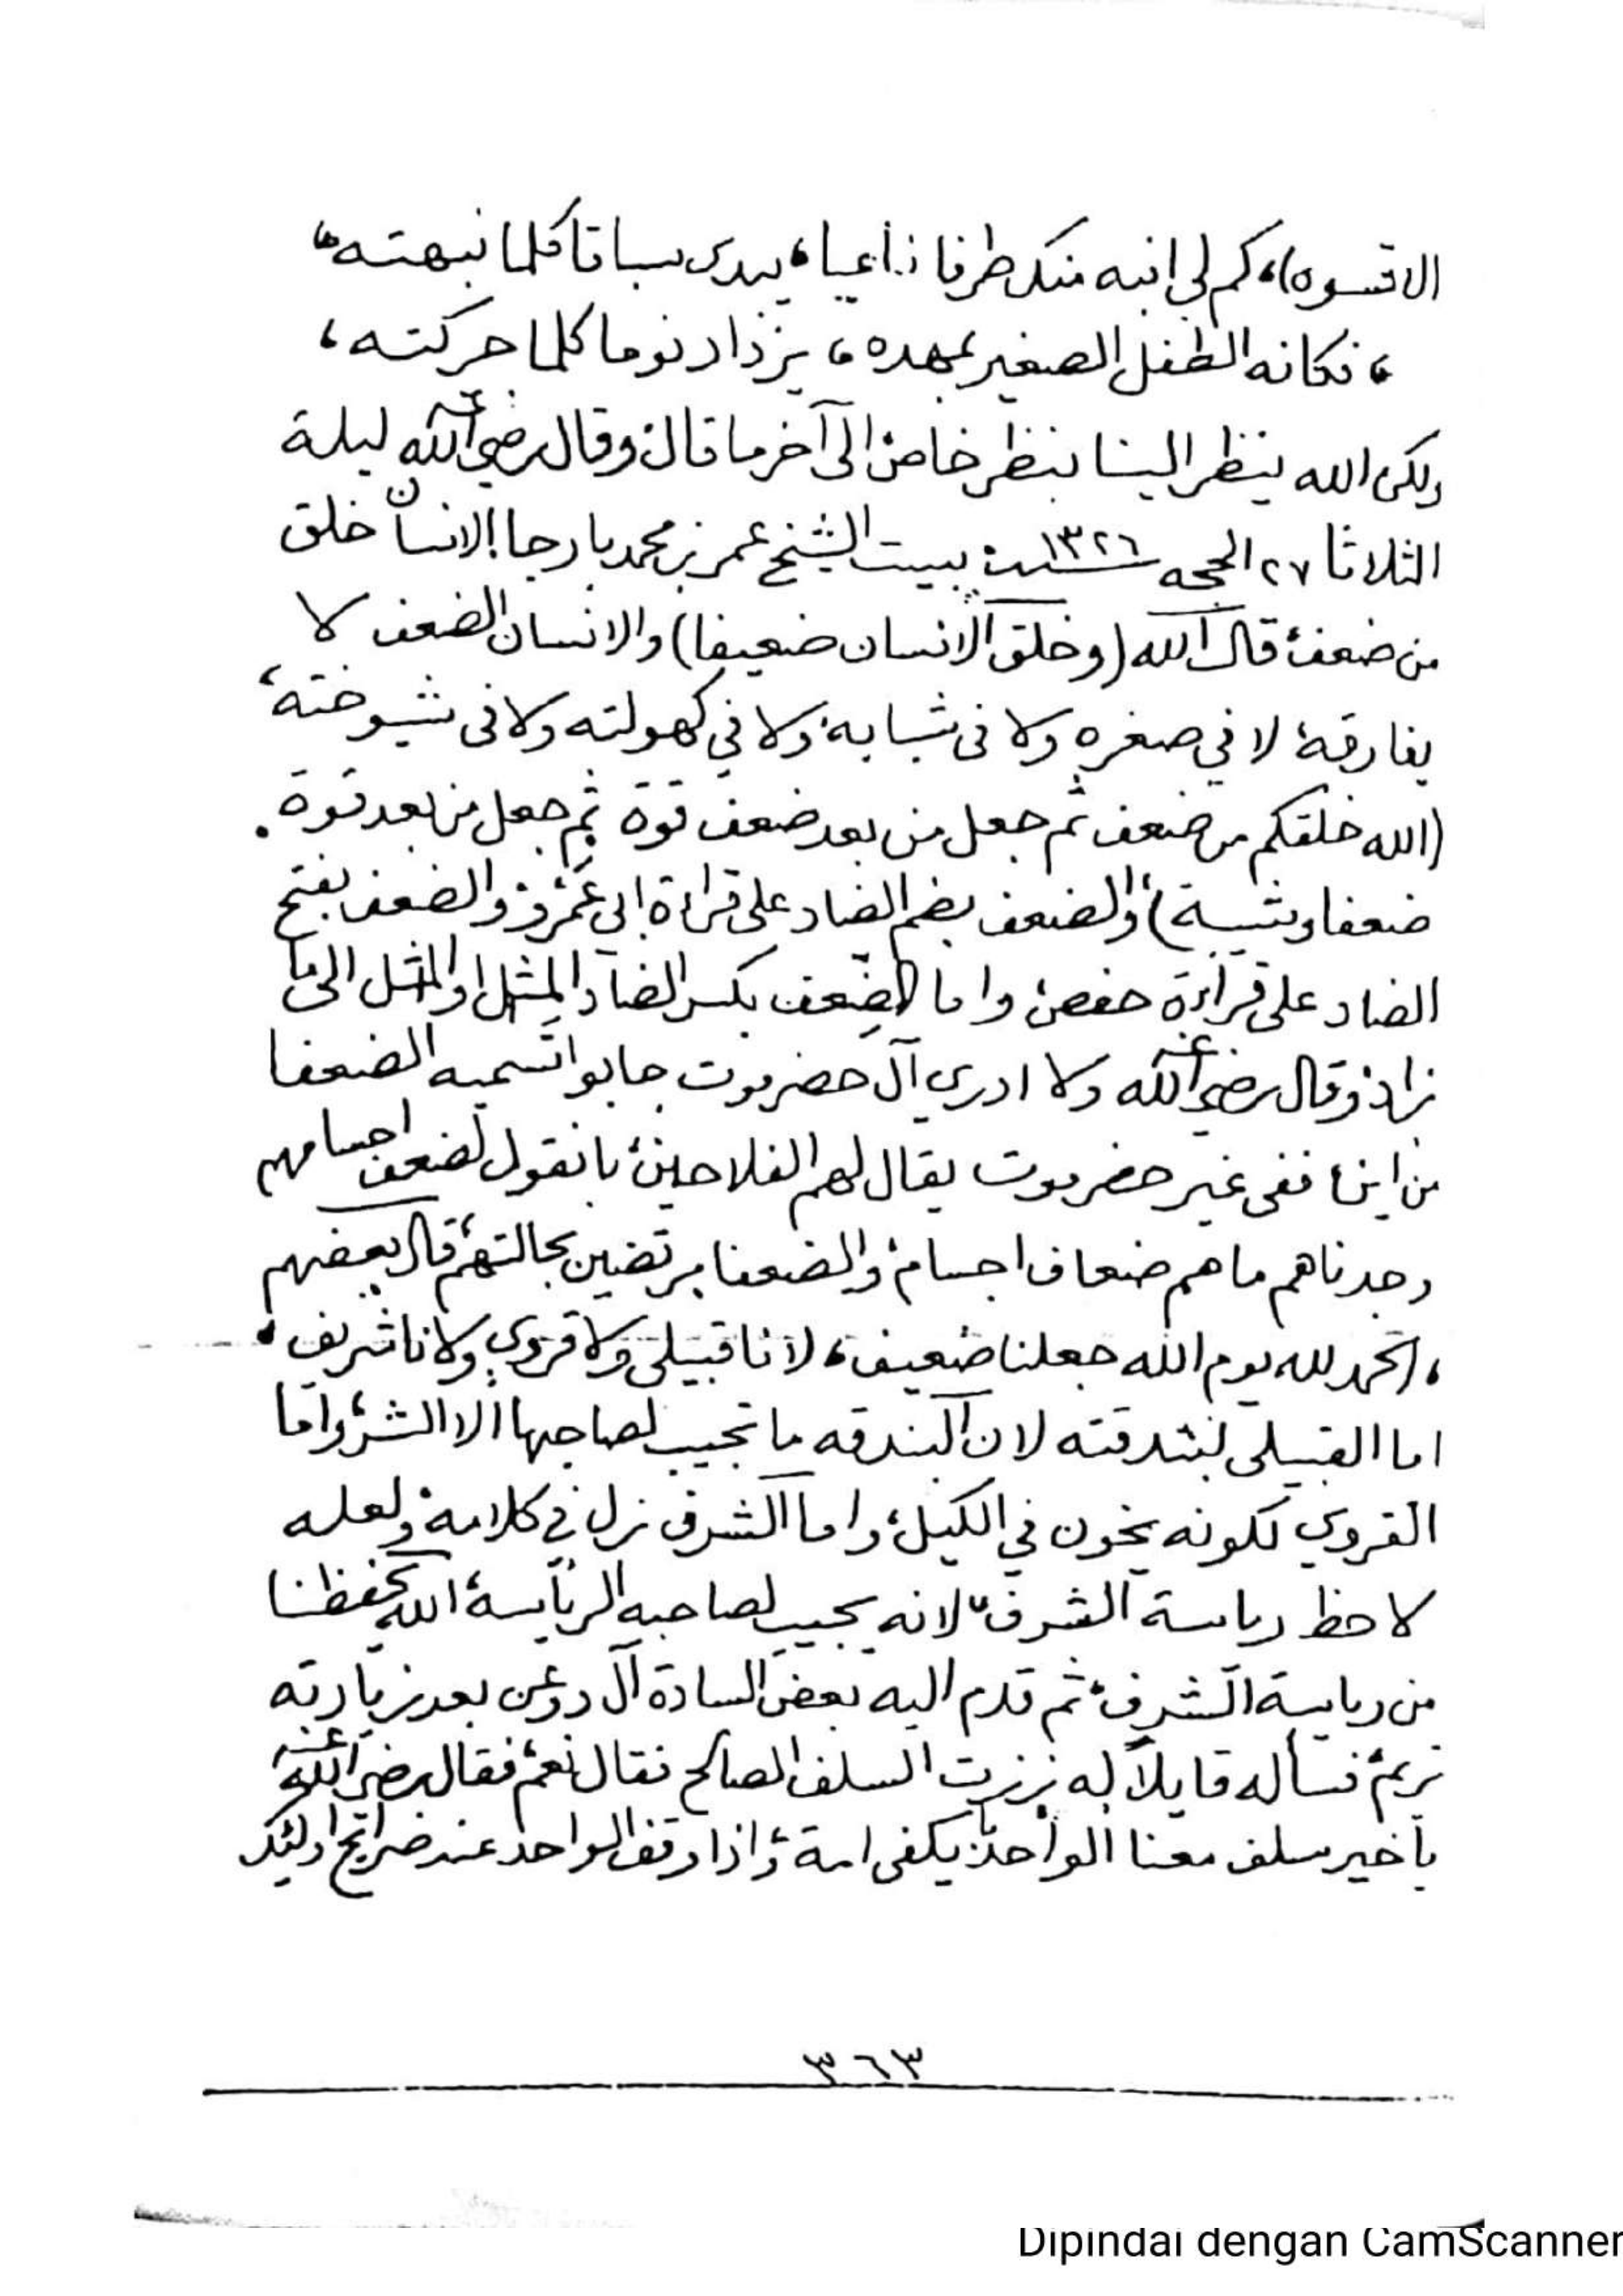 الا قسوه)، كم لي انبه منك طرفا ناعيا، يبدى سباتا كلما نبهته،
، فكانه الطفل الصغير بمهده، يزداد نوما كلما حركته،
ولكن الله ينظر الينا بنظر خاص، الى آخر ما قال، وقال رضي الله عنه ليلة
الثلاثا ٢٧ الحجه سنة ١٣٢٦ ببيت الشيخ عمر بن محمد بارجا، الانسان خلق
من ضعف، قال الله (وخلق الانسان ضعيفا) والانسان الضعف لا
يفارقه، لا في صغره ولا فى شبابه، ولا في كهولته ولا فى شيوخته،
(الله خلقكم من ضعف ثم جعل من بعد ضعف قوة ثم جعل من بعد قوة.
ضعفا وشيبة)، والضعف بضم الضاد على قراءة ابى عمرو، والضعف بفتح
الضاد على قراءة حفص، واما الضِعف بكسر الضاد المثل او المثل الى ما
زاد، وقال رضي الله عنه ولا ادري آل حضرموت جابوا تسميه الضعفا
من اين، ففى غير حضرموت يقال لهم الفلاحين، با نقول لضعف اجسامهم
وجدناهم ما هم ضعاف اجسام، والضعفا مرتضين بحالتهم، قال بعضهم
، الحمد لله يوم الله جعلنا ضعيف، لانا قبيلى ولا قروي ولانا شريف،
اما القبيلى لبندقته لان البندقه ما تجيب لصاحبها الا الشر، واما
القروي لكونه يخون في الكيل، واما الشرف نزل في كلامه، ولعله
لاحظ رياسة الشرف، لانه يجيب لصاحبه الريآسة، الله يحفظنا
من رياسة الشرف، ثم قدم اليه بعض السادة آل دوعن بعد زيارته
تريم، فسأله قايلاً له زرت السلف الصالح فقال نعم، فقال رضي الله عنه
يا خير سلف معنا الواحد يكفى امة، واذا وقف الواحد عند ضرائح اولئك
٣٦٣
Dipindai dengan CamScanner